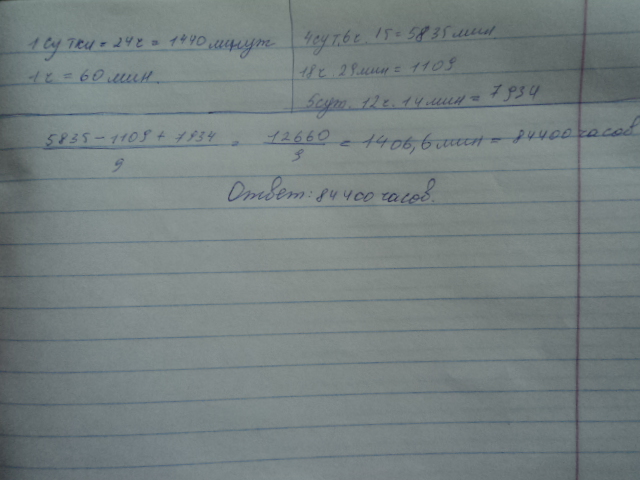 1 сутки = 24ч = 1440 минут
1 ч = 60 мин.
4сут. 6 ч. 15 = 5835 мин
18 ч. 29 мин = 1109
5сут. 12 ч. 14 мин = 7934
5835 - 1109 + 7934 / 9 = 12660 / 9 = 1406,6 мин = 84400 часов
Ответ: 84400 часов.